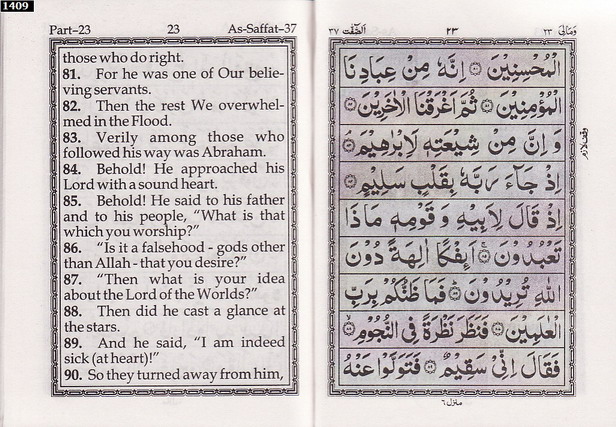 1409
Part-23 23 As-Saffat-37
those who do right.
81. For he was one of Our belie-
ving servants.
82. Then the rest We overwhel-
med in the Flood.
83. Verily among those who
followed his way was Abraham.
84. Behold! He approached his
Lord with a sound heart.
85. Behold! He said to his father
and to his people, “What is that
which you worship?”
86. “Is it a falsehood - gods other
than Allah - that you desire?”
87. “Then what is your idea
about the Lord of the Worlds?”
88. Then did he cast a glance at
the stars.
89. And he said, “I am indeed
sick (at heart)!”
90. So they turned away from him,
وَمَالِیَ ٢٣ ٢٣ الصّٰٓفّٰت ٣٧
الْمُحْسِنِيْنَ ۝ اِنَّهٗ مِنْ عِبَادِنَا
الْمُؤْمِنِيْنَ ۝ ثُمَّ اَغْرَقْنَا الْاٰخَرِيْنَ ۝
وَ اِنَّ مِنْ شِيْعَتِهٖ لَاِبْرٰهِيْمَ ۝
اِذْ جَآءَ رَبَّهٗ بِقَلْبٍ سَلِيْمٍ ۝
اِذْ قَالَ لِاَبِيْهِ وَ قَوْمِهٖ مَاذَا
تَعْبُدُوْنَ ۝ اَئِفْكًا اٰلِهَةً دُوْنَ
اللّٰهِ تُرِيْدُوْنَ ۝ فَمَا ظَنُّكُمْ بِرَبِّ
الْعٰلَمِيْنَ ۝ فَنَظَرَ نَظْرَةً فِى النُّجُوْمِ ۝
فَقَالَ اِنِّىْ سَقِيْمٌ ۝ فَتَوَلَّوْا عَنْهُ
وقف لازم
منزل ٦